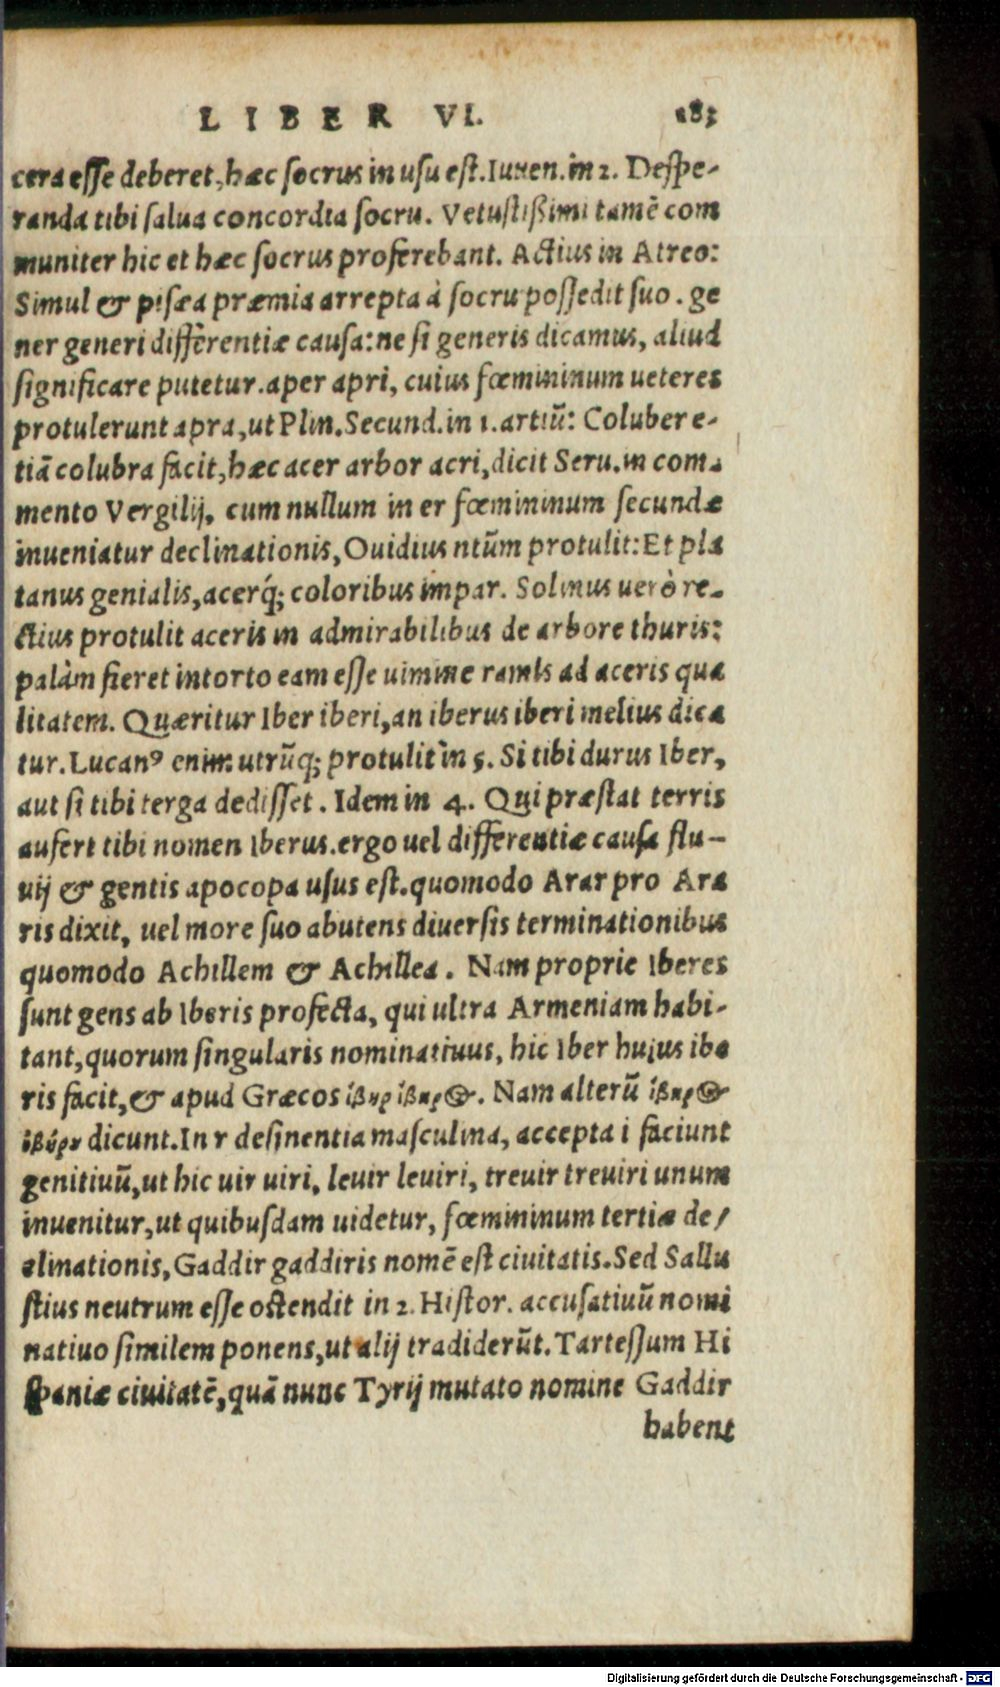 LIBER VI. 183
cera esse deberet, hæc socrus in usu est. Iuuen. in 2. Despe-
randa tibi salua concordia socru. Vetustißimi tamē com
muniter hic et hæc socrus proferebant. Actius in Atreo:
Simul & pisæa præmia arrepta à socru possedit suo. ge
ner generi differentiæ causa: ne si generis dicamus, aliud
significare putetur. aper apri, cuius fœmininum ueteres
protulerunt apra, ut Plin. Secund. in 1. artiū: Coluber e-
tiā colubra facit, hæc acer arbor acri, dicit Seru. in com-
mento Vergilij, cum nullum in er fœmininum secundæ
inueniatur declinationis, Ouidius ntūm protulit: Et pla
tanus genialis, acerq́; coloribus impar. Solinus uerò re-
ctius protulit aceris in admirabilibus de arbore thuris:
palàm fieret intorto eam esse uimine ramis ad aceris qua
litatem. Quæritur Iber iberi, an iberus iberi melius dica
tur. Lucanꝰ enim utrūq; protulit in 5. Si tibi durus Iber,
aut si tibi terga dedisset. Idem in 4. Qui præstat terris
aufert tibi nomen Iberus. ergo uel differentiæ causa flu-
uij & gentis apocopa usus est. quomodo Arar pro Ara
ris dixit, uel more suo abutens diuersis terminationibus
quomodo Achillem & Achillea. Nam proprie Iberes
sunt gens ab Iberis profecta, qui ultra Armeniam habi-
tant, quorum singularis nominatiuus, hic Iber huius ibe
ris facit, & apud Græcos ἴβηρ ἴβηρος. Nam alterū ἴβηρος
ἰβήρου dicunt. In r desinentia masculina, accepta i faciunt
genitiuū, ut hic uir uiri, leuir leuiri, treuir treuiri unum
inuenitur, ut quibusdam uidetur, fœmininum tertiæ de/
clinationis, Gaddir gaddiris nomē est ciuitatis. Sed Sallu
stius neutrum esse ostendit in 2. Histor. accusatiuū nomi
natiuo similem ponens, ut alij tradiderūt. Tartessum Hi
spaniæ ciuitatē, quā nunc Tyrij mutato nomine Gaddir
habent
Digitalisierung gefördert durch die Deutsche Forschungsgemeinschaft - DFG